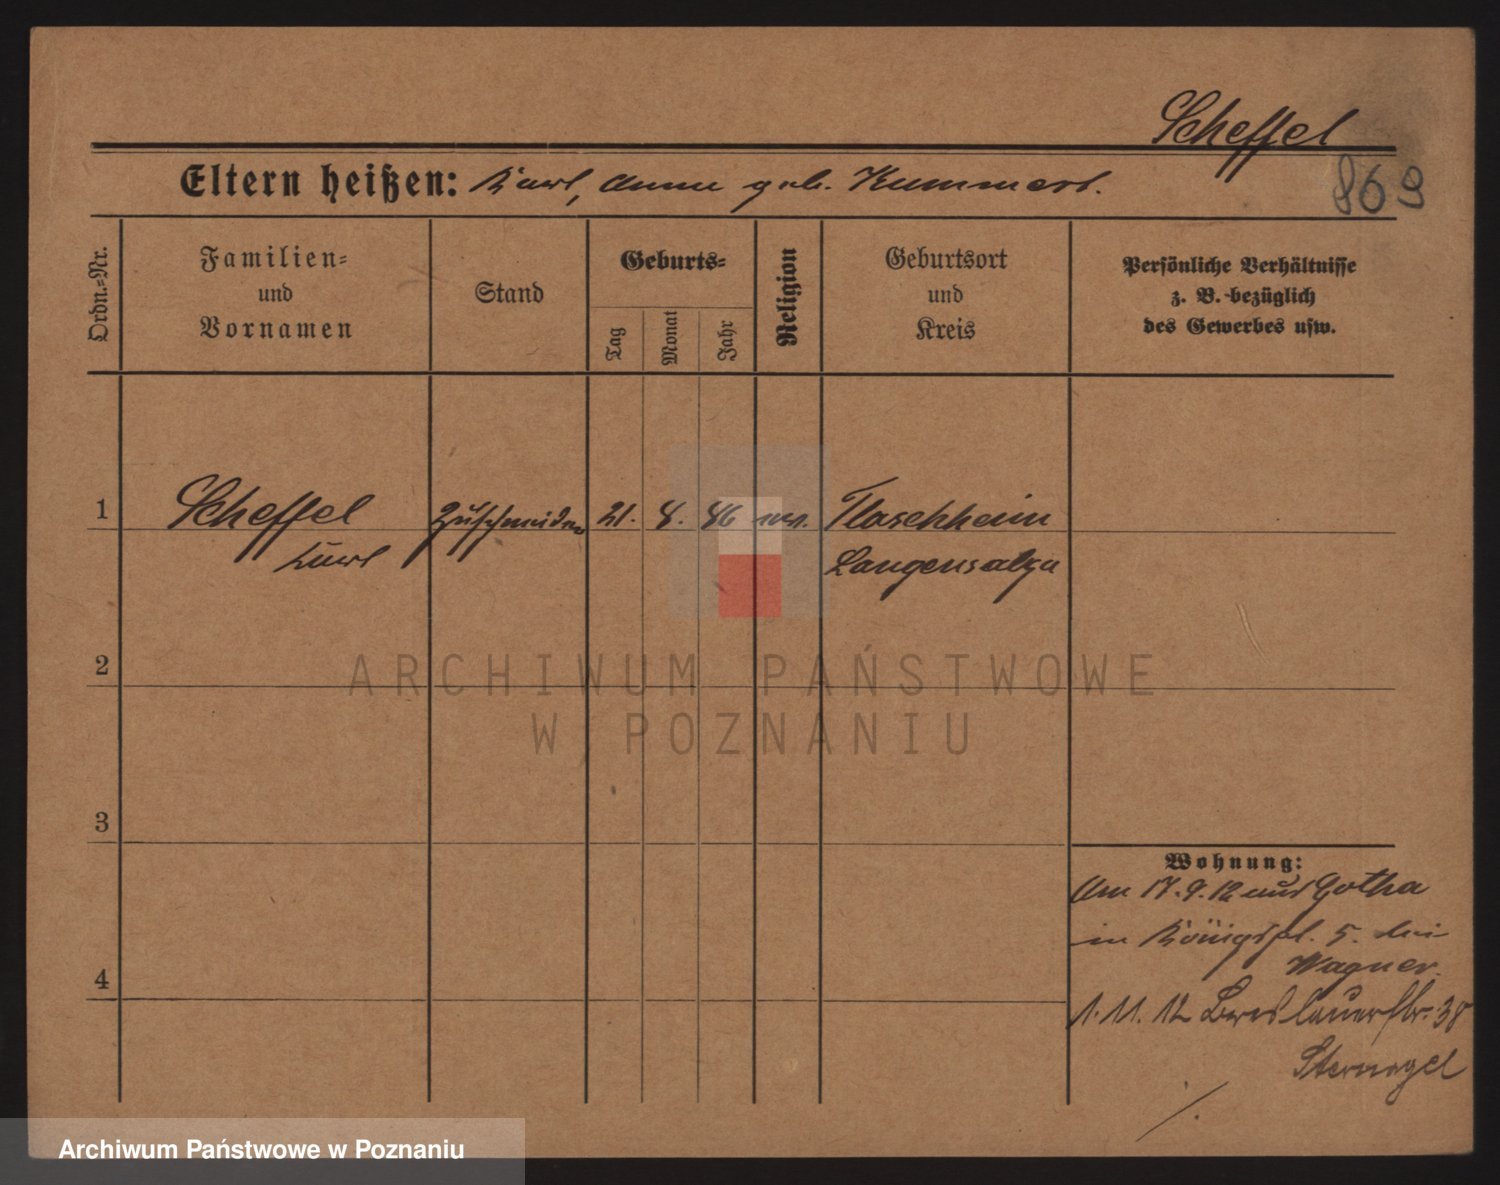 Scheffel
869
Eltern heißen: Karl, Anna geb. Kummert.
Ordn.-Nr.
Familien- und Vornamen
Stand
Geburts-
Tag
Monat
Jahr
Religion
Geburtsort und Kreis
Persönliche Verhältnisse
z. B. bezüglich
des Gewerbes usw.
1
Scheffel
Zuschneider
21.
8.
86
ev.
Flarchheim
Karl
Langensalza
2
3
4
Wohnung:
Am 17.9.12 aus Gotha
in Königspl. 5. bei
Wagner.
1.11.12 Breslauerstr. 38
Sternagel
ARCHIWUM PAŃSTWOWE
W POZNANIU
Archiwum Państwowe w Poznaniu